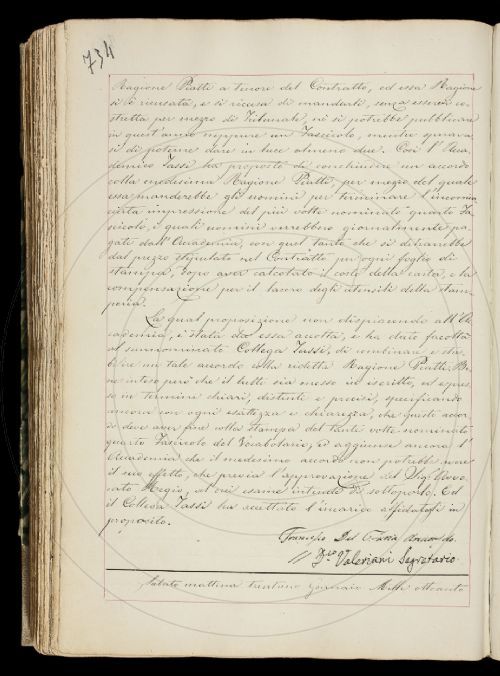 734
Ragione Piatti a tenore del Contratto, ed essa Ragione
si è ricusata, e si ricusa di mandarli, senza esservi co-
stretta per mezzo di Tribunale, nè si potrebbe pubblicare
in quest'anno neppure un Fascicolo, mentre sperava-
si di poterne dare in luce almeno due. Così l'Acca-
demico Tassi ha proposto di conchiudere un accordo
colla medesima Ragione Piatti, per mezzo del quale
essa manderebbe gli uomini per terminare l'incomin-
ciata impressione del più volte nominato quarto Fa-
scicolo, i quali uomini verrebbero giornalmente pa-
gati dall'Accademia, con quel tanto che si detrarrebbe
dal prezzo stipulato nel Contratto per ogni foglio di
stampa, dopo aver calcolato il costo della carta, e la
compensazione per il lavoro degli utensili della stam-
peria.
La qual proposizione non dispiacendo all'Ac-
cademia, è stata da essa accolta, e ha dato facoltà
al summominato Collega Tassi, di combinare e sta-
bilire un tale accordo colla ridetta Ragione Piatti. Be-
ne inteso però che il tutto sia messo in iscritto, ed espres-
so in termini chiari, distinti e precisi, specificando
ancora con ogni esattezza e chiarezza, che questo accor-
do deve aver fine colla stampa del tante volte nominato
quarto Fascicolo del Vocabolario, ed aggiunse ancora l'
Accademia che il medesimo accordo non potrebbe avere
il suo effetto, che previa l'approvazione del Sig.r Avvo-
cato Regio, al cui esame intende di sottoporlo. Ed
il Collega Tassi ha accettato l'incarico affidatogli in
proposito.
Francesco Del Furia
Valeriani Segretario
Sabato mattina trentuno Gennaio Mille ottocento